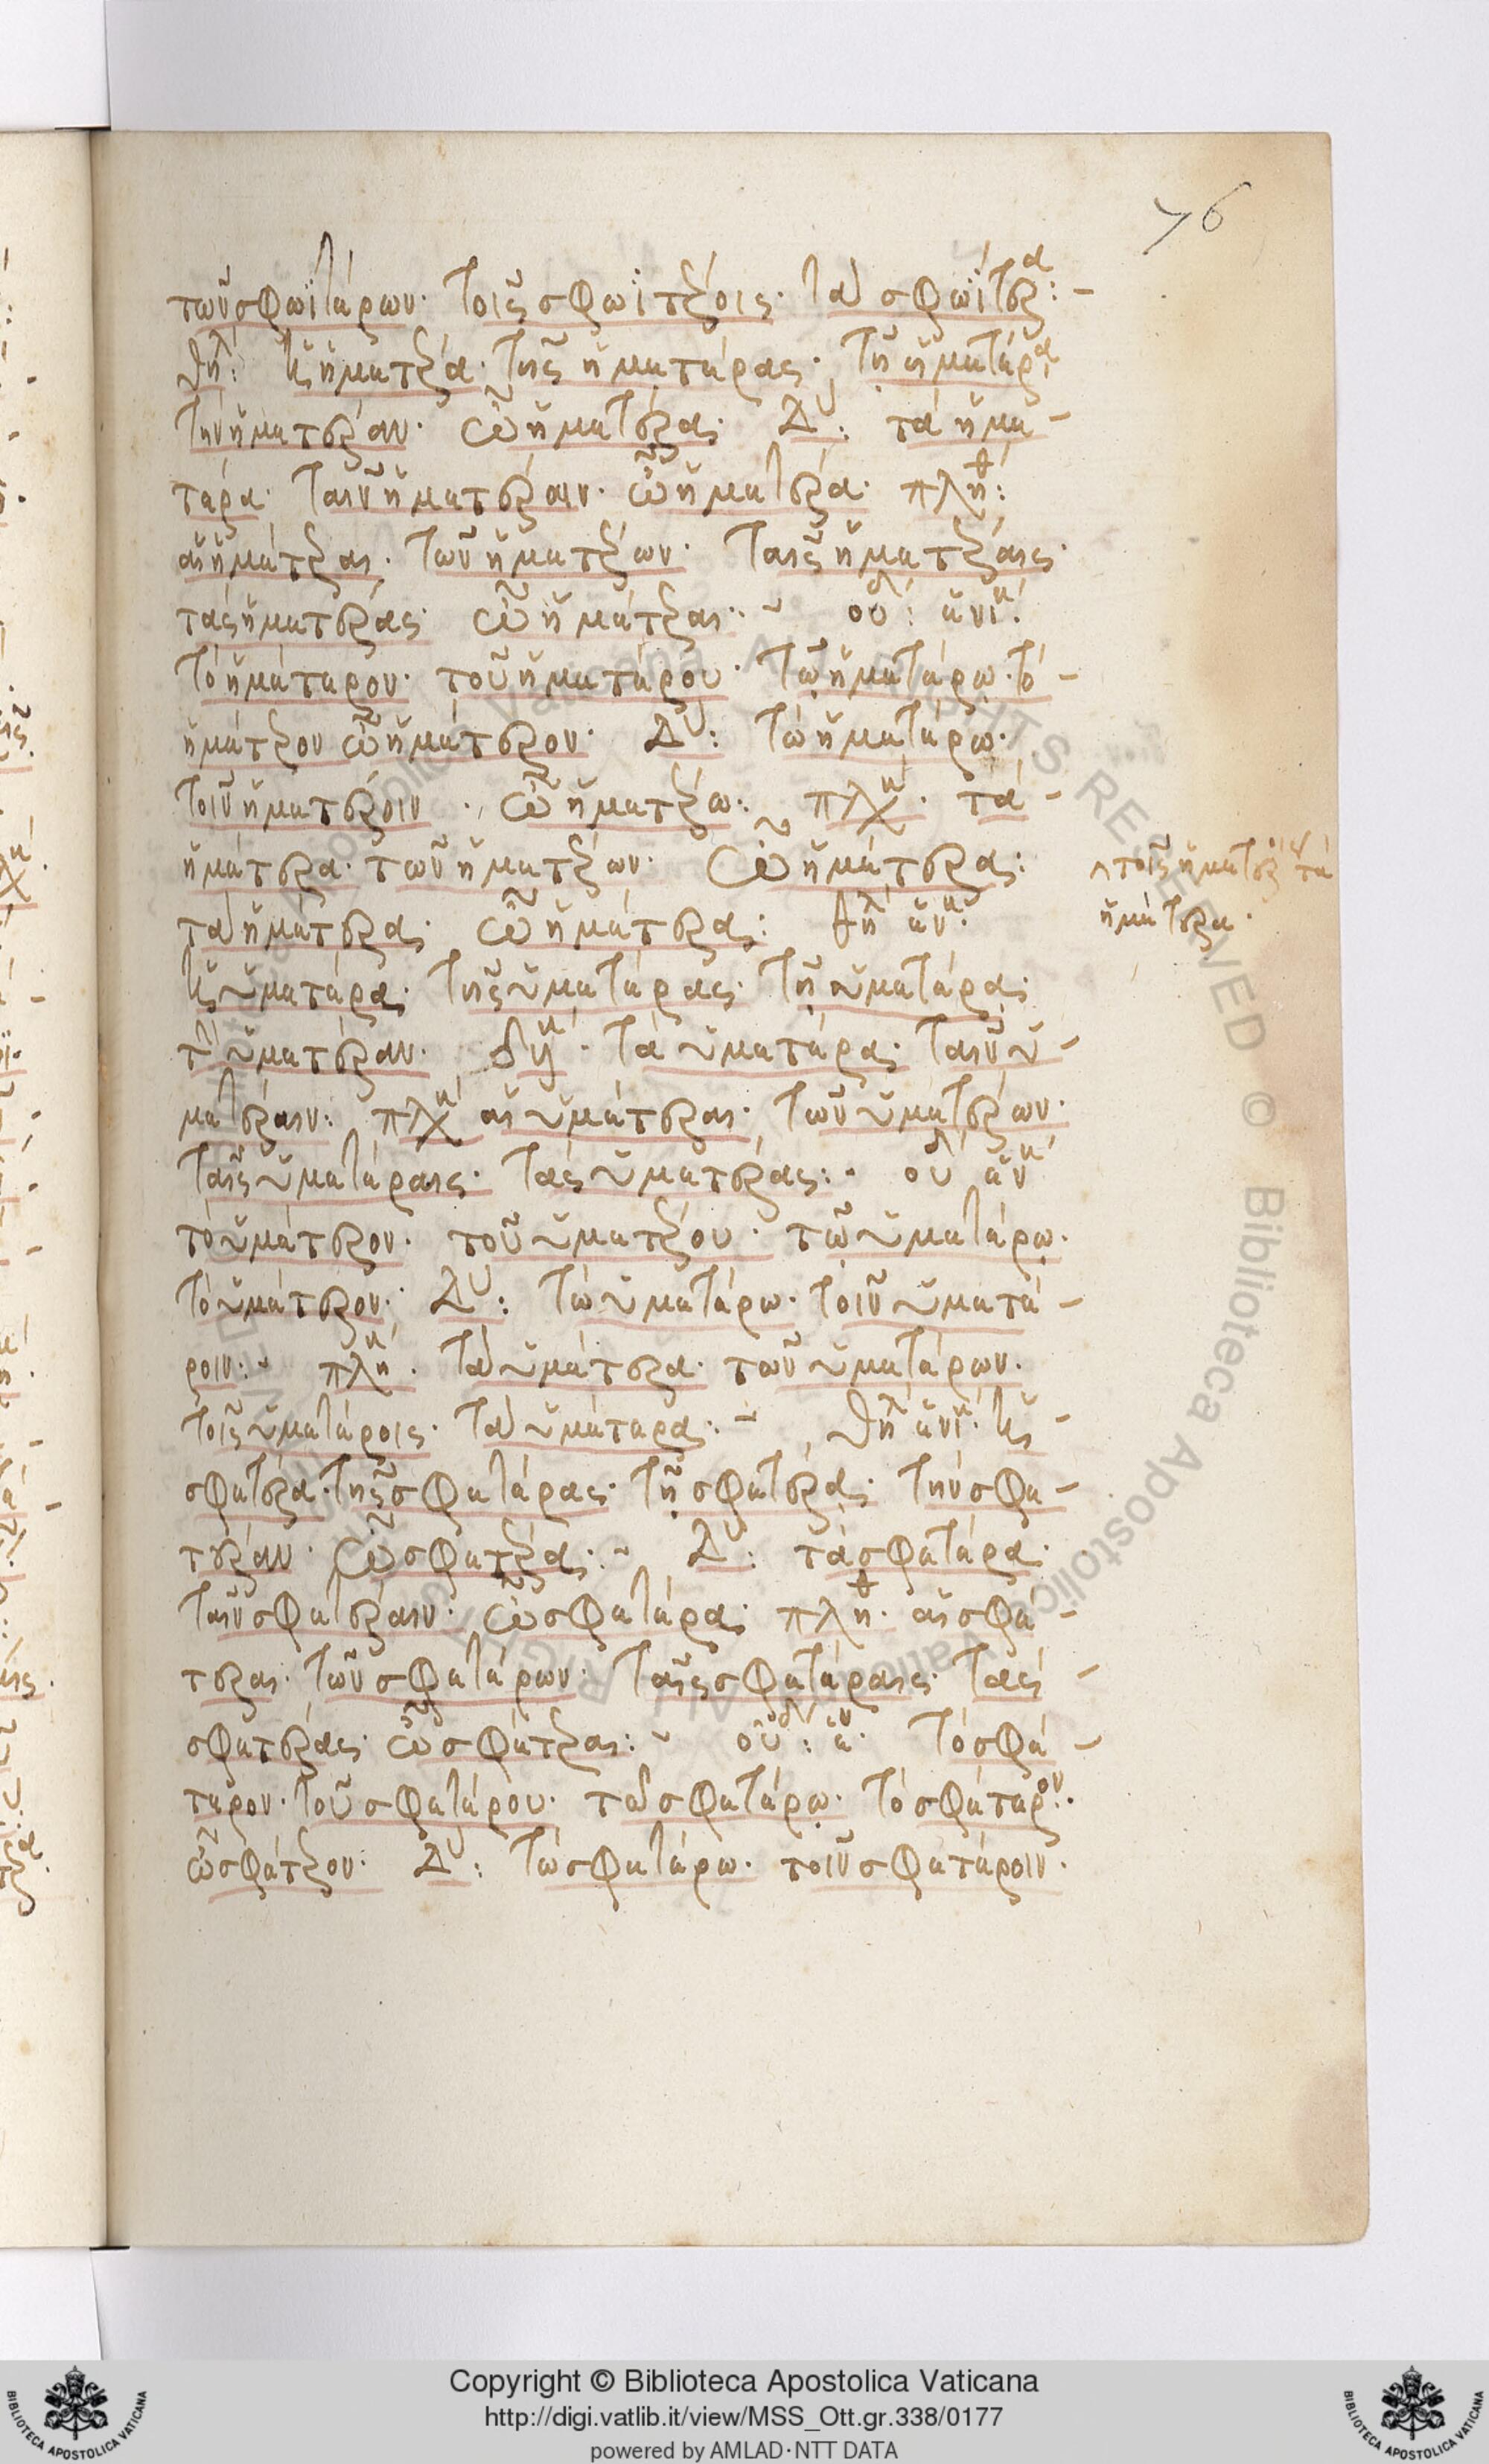 76
τῶν σφωϊτέρων· τοῖς σφωϊτέροις· τὰ σφωΐτερα:-
θηλ: ἡ ἡμετέρα· τῆς ἡμετέρας· τῇ ἡμετέρα
τὴν ἡμετέραν· ὦ ἡμετέρα· Δυ: τὰ ἡμε-
τέρα· ταῖν ἡμετέραιν· ὦ ἡμετέρα· πλη:
αἱ ἡμέτεραι· τῶν ἡμετέρων· ταῖς ἡμετέραις·
τὰς ἡμετέρας· ὦ ἡμέτεραι: οὐδ: ἑνικ:
τὸ ἡμέτερον· τοῦ ἡμετέρου· τῷ ἡμετέρῳ· τὸ-
ἡμέτερον ὦ ἡμέτερον· Δυ: τὼ ἡμετέρω·
τοῖν ἡμετέροιν· ὦ ἡμετέρω: πλη· τὰ-
ἡμέτερα· τῶν ἡμετέρων· ὦ ἡμέτερα:
τοῖς ἡμετέροις τὰ
ἡμέτερα·
τὰ ἡμέτερα· ὦ ἡμέτερα: θηλ ἑν·
ἡ ὑμετέρα· τῆς ὑμετέρας· τῇ ὑμετέρᾳ·
τὴν ὑμετέραν· δυϊκ· τὰ ὑμετέρα· ταῖν ὑ-
μετέραιν: πλη αἱ ὑμέτεραι· τῶν ὑμετέρων·
ταῖς ὑμετέραις· τὰς ὑμετέρας: οὐδ ἑν
τὸ ὑμέτερον· τοῦ ὑμετέρου· τῷ ὑμετέρῳ·
τὸ ὑμέτερον· Δυ: τὼ ὑμετέρω· τοῖν ὑμετέ-
ροιν: πλη· τὰ ὑμέτερα· τῶν ὑμετέρων·
τοῖς ὑμετέροις· τὰ ὑμέτερα: θηλ ἑνικ· ἡ-
σφετέρα· τῆς σφετέρας· τῇ σφετέρᾳ· τὴν σφε-
τέραν· ὦ σφετέρα: Δυ: τὰ σφετέρα·
ταῖν σφετέραιν· ὦ σφετέρα· πλη· αἱ σφέ-
τεραι· τῶν σφετέρων· ταῖς σφετέραις· τὰς-
σφετέρας· ὦ σφέτεραι: οὐδ: ἑν· τὸ σφέ-
τερον· τοῦ σφετέρου· τῷ σφετέρῳ· τὸ σφέτερον·
ὦ σφέτερον· Δυ: τὼ σφετέρω· τοῖν σφετέροιν·
Copyright © Biblioteca Apostolica Vaticana
http://digi.vatlib.it/view/MSS_Ott.gr.338/0177
powered by AMLAD·NTT DATA